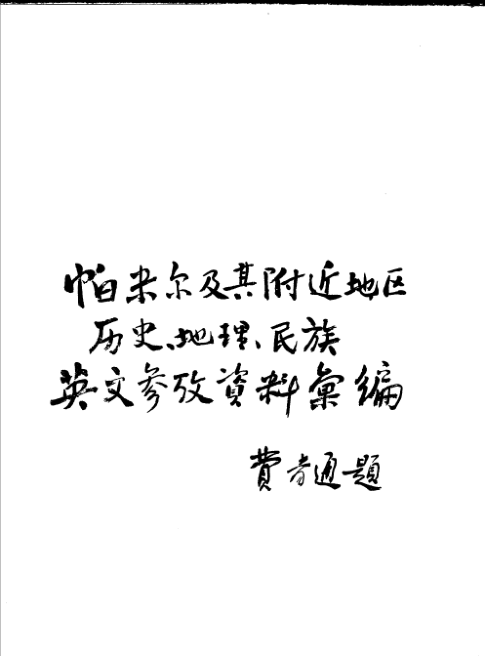 帕米尔及其附近地区
历史、地理、民族
英文参攷資料彙编
費孝通題